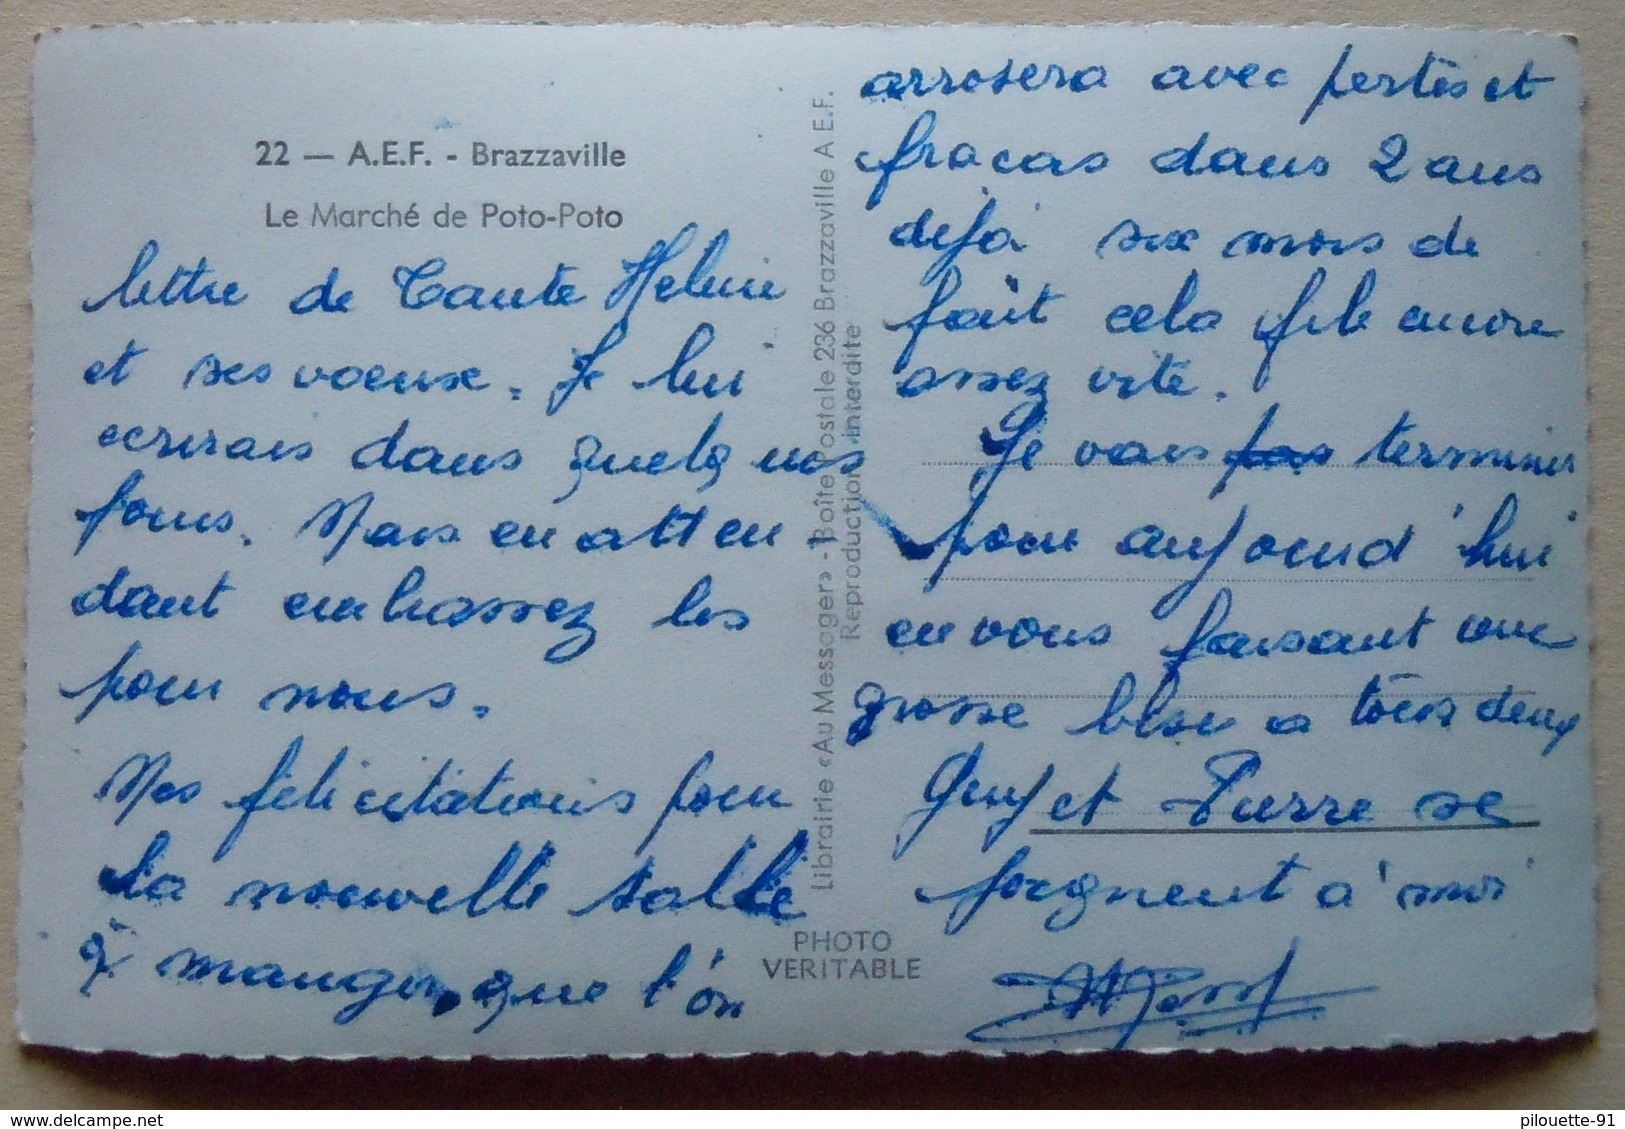 22 — A.E.F. - Brazzaville
Le Marché de Poto-Poto
lettre de Tante Helene
et ses voeux. Je lui
ecrirais dans quelques
jours. Mais en atten
dant embrassez les
pour nous.
Mes félicitations pour
la nouvelle salle
à manger, que l'on
Librairie «Au Messager» - Boîte Postale 236 Brazzaville A.E.F.
Reproduction interdite
PHOTO
VERITABLE
arrosera avec pertes et
fracas dans 2 ans
deja six mois de
fait cela file encore
assez vite.
Je vais pas terminer
pour aujourd'hui
en vous faisant une
grosse bise a tous deux
Guy et Pierre se
joignent a moi
delcampe.net
pilouette-91